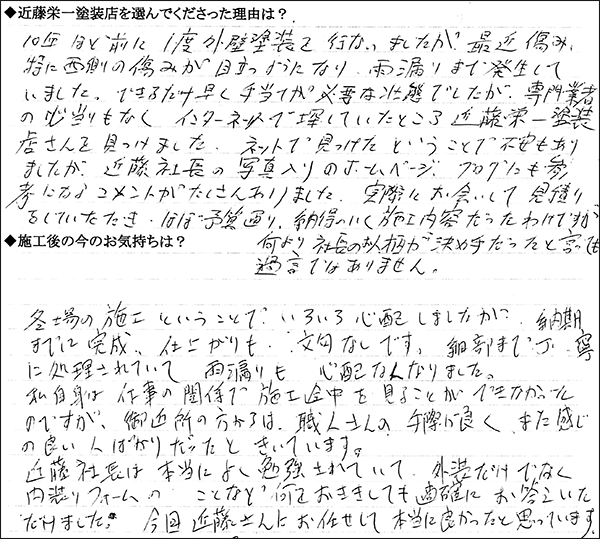 ◆近藤栄一塗装店を選んでくださった理由は？
10年ほど前に1度外壁塗装を行ないましたが、最近傷み、
特に西側の傷みが目立つようになり、雨漏りまで発生して
いました。できるだけ早く手当てが必要な状態でしたが、専門業者
の心当りもなく インターネットで探していたところ近藤栄一塗装
店さんを見つけました。ネットで見つけたということで不安もあり
ましたが、近藤社長の写真入りのホームページ、ブログにも参
考になるコメントがたくさんありました。実際にお会いして見積り
をしていただき、ほぼ予算通り、納得のいく施工内容だったわけですが
◆施工後の今のお気持ちは？
何より社長のお人柄が決め手だったと言っても
過言ではありません。
冬場の施工ということで、いろいろ心配しましたが、納期
までに完成、仕上がりも、文句なしです。細部まで丁寧
に処理されていて 雨漏りも 心配なくなりました。
私自身は 仕事の関係で施工途中を見ることができなかった
のですが、御近所の方からは、職人さんの手際が良く、また感じ
の良い人ばかりだったときいています。
近藤社長は本当によく勉強されていて、外装だけでなく
内装リフォームの ことなど何をおききしても適確にお答えいた
だけました。今回近藤さんにお任せして本当に良かったと思っています。